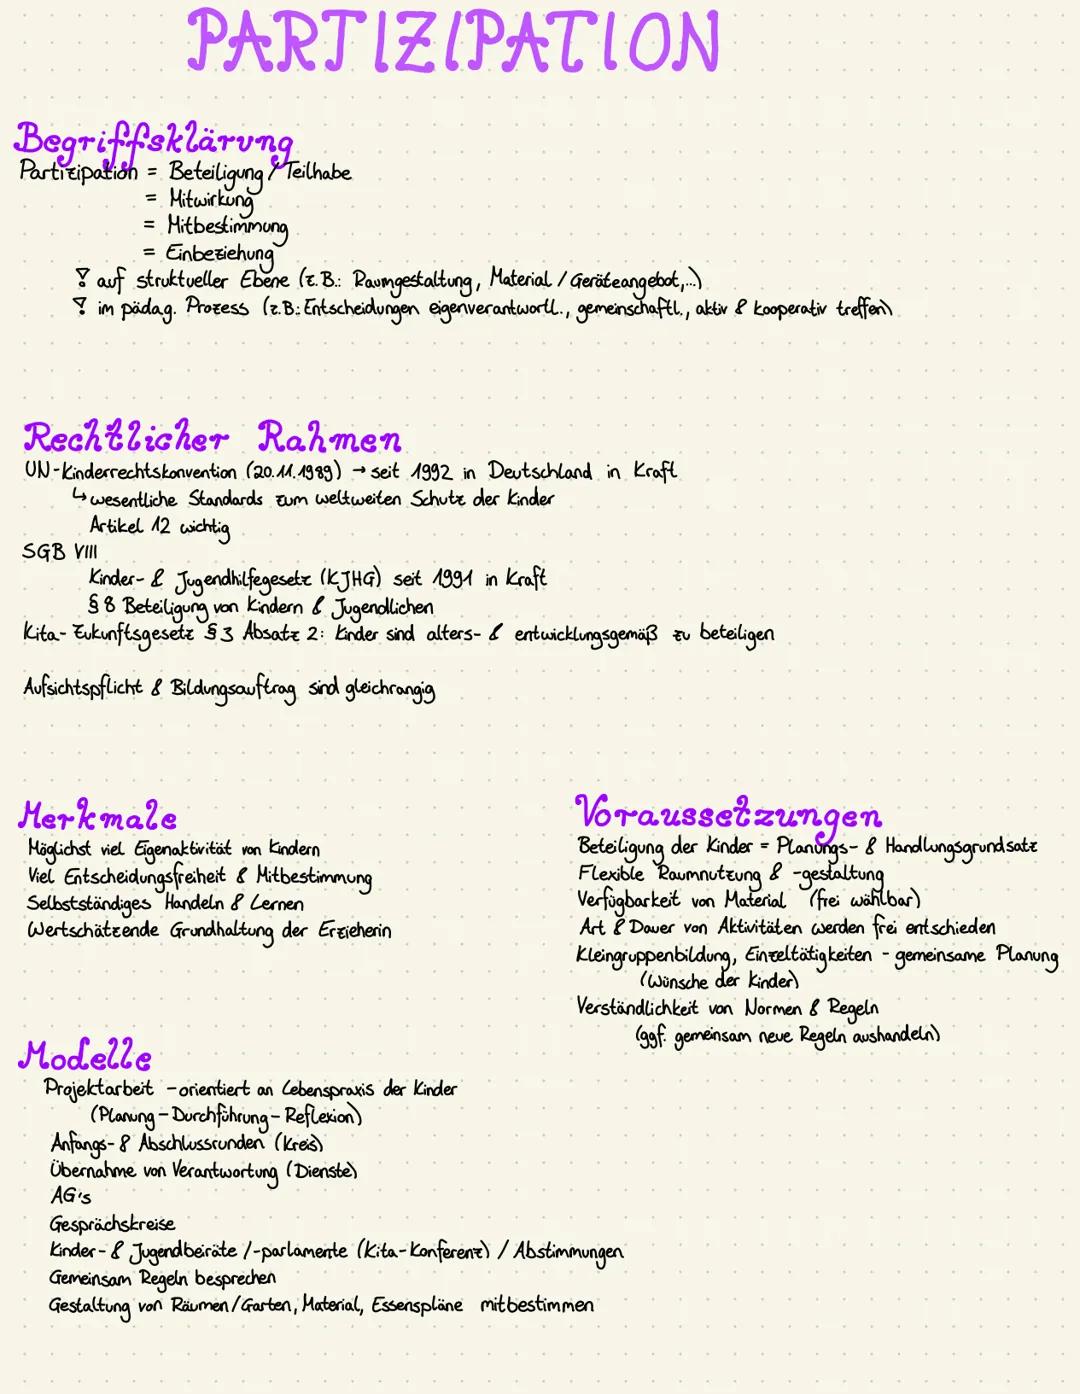 PARTIZIPATION
Begriffsklärung
Partizipation = Beteiligung / Teilhabe
= Mitwirkung
= Mitbestimmung
= Einbeziehung
auf struktueller Ebene (z.B.: Raumgestaltung, Material / Geräteangebot,...)
im pädag. Prozess (z.B.: Entscheidungen eigenverantwortl., gemeinschaftl., aktiv & kooperativ treffen)
Rechtlicher Rahmen
UN-Kinderrechtskonvention (20.11.1989) → seit 1992 in Deutschland in Kraft
↳ wesentliche Standards zum weltweiten Schutz der Kinder
Artikel 12 wichtig
SGB VIII
Kinder- & Jugendhilfegesetz (KJHG) seit 1991 in Kraft
§ 8 Beteiligung von Kindern & Jugendlichen
Kita-Zukunftsgesetz § 3 Absatz 2: Kinder sind alters- & entwicklungsgemäß zu beteiligen
Aufsichtspflicht & Bildungsauftrag sind gleichrangig
Merkmale
Möglichst viel Eigenaktivität von Kindern
Viel Entscheidungsfreiheit & Mitbestimmung
Selbstständiges Handeln & Lernen
Wertschätzende Grundhaltung der Erzieherin
Voraussetzungen
Beteiligung der Kinder = Planungs- & Handlungsgrundsatz
Flexible Raumnutzung & -gestaltung
Verfügbarkeit von Material (frei wählbar)
Art & Dauer von Aktivitäten werden frei entschieden
Kleingruppenbildung, Einzeltätigkeiten - gemeinsame Planung
(Wünsche der Kinder)
Verständlichkeit von Normen & Regeln
(ggf. gemeinsam neue Regeln aushandeln)
Modelle
Projektarbeit - orientiert an Lebenspraxis der Kinder
(Planung - Durchführung - Reflexion)
Anfangs- & Abschlussrunden (Kreis)
Übernahme von Verantwortung (Dienste)
AG's
Gesprächskreise
Kinder- & Jugendbeiräte /-parlamente (Kita-Konferenz) / Abstimmungen
Gemeinsam Regeln besprechen
Gestaltung von Räumen/Garten, Material, Essenspläne mitbestimmen